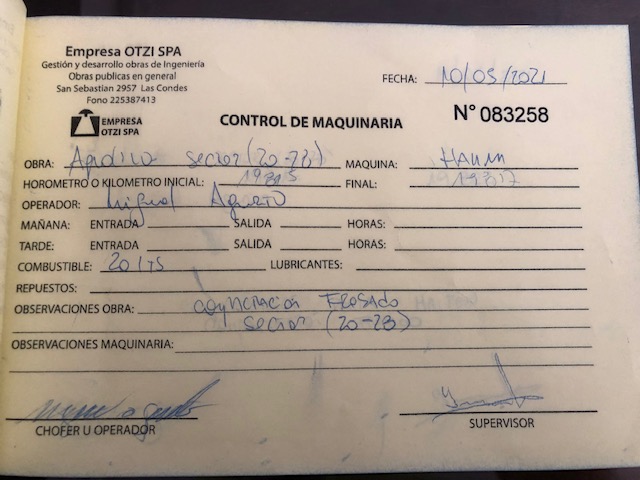 Empresa OTZI SPA
Gestión y desarrollo obras de Ingeniería
Obras publicas en general
San Sebastian 2957 Las Condes
Fono 225387413
EMPRESA
OTZI SPA
FECHA: 10/05/2021
CONTROL DE MAQUINARIA
N° 083258
OBRA: sector (20-28) MAQUINA: HAMM
HOROMETRO O KILOMETRO INICIAL: FINAL:
OPERADOR:
MAÑANA: ENTRADA SALIDA HORAS:
TARDE: ENTRADA SALIDA HORAS:
COMBUSTIBLE: 20 LTS LUBRICANTES:
REPUESTOS:
OBSERVACIONES OBRA: Fresado
sector (20-28)
OBSERVACIONES MAQUINARIA:
CHOFER U OPERADOR
SUPERVISOR